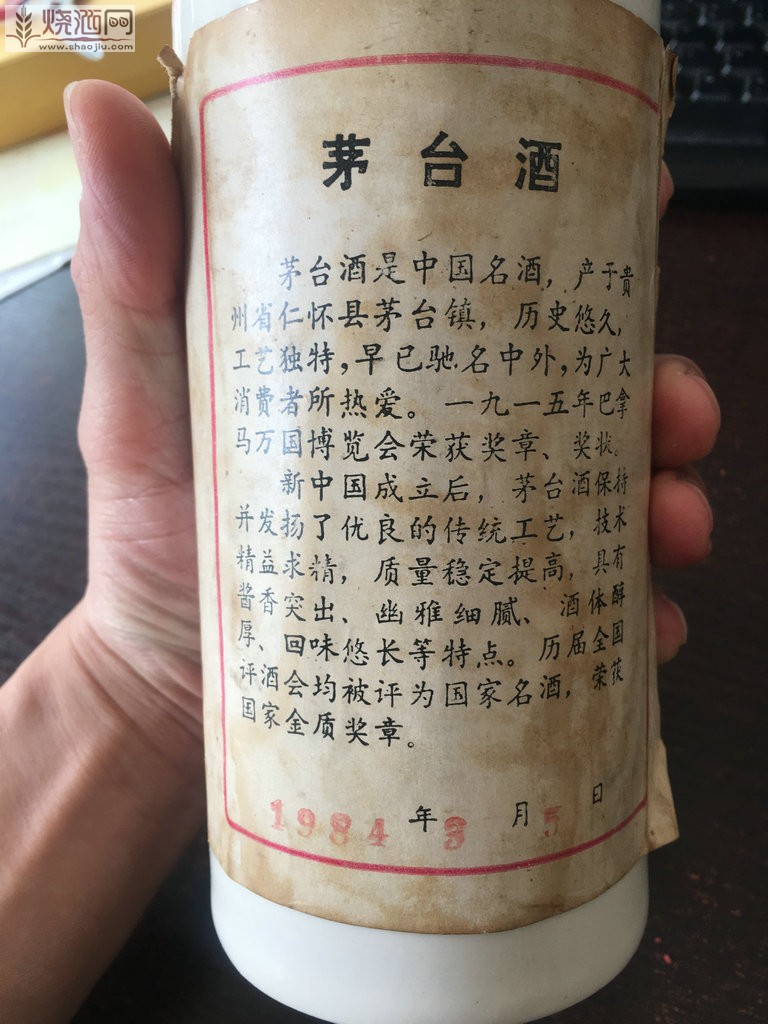 烧酒网
www.shaojiu.com
茅台酒
茅台酒是中国名酒，产于贵
州省仁怀县茅台镇，历史悠久，
工艺独特，早已驰名中外，为广大
消费者所热爱。一九一五年巴拿
马万国博览会荣获奖章、奖状。
新中国成立后，茅台酒保持
并发扬了优良的传统工艺，技术
精益求精，质量稳定提高，具有
酱香突出、幽雅细腻、酒体醇
厚、回味悠长等特点。历届全国
评酒会均被评为国家名酒，荣获
国家金质奖章。
1984年3月5日